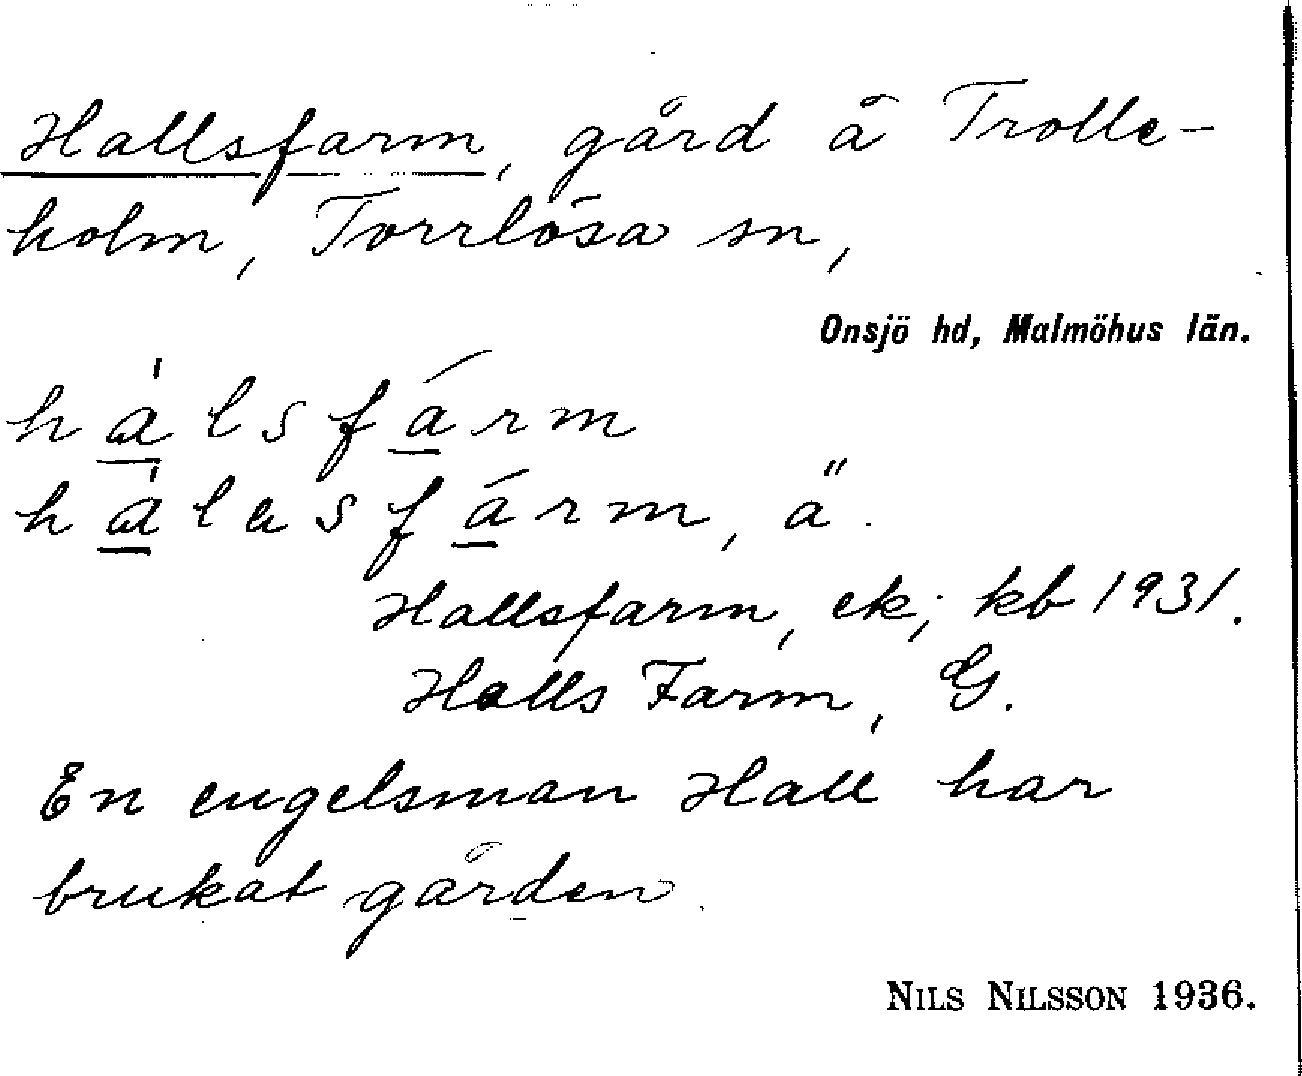 Hallsfarm, gård å Trolle-
holm, Torrlösa sn,
Onsjö hd, Malmöhus län.
hàlsfárm
hàlasfárm, ä.
Hallsfarm, ek; kb 1931.
Halls Farm, G.
En engelsman Hall har
brukat gården
NILS NILSSON 1936.